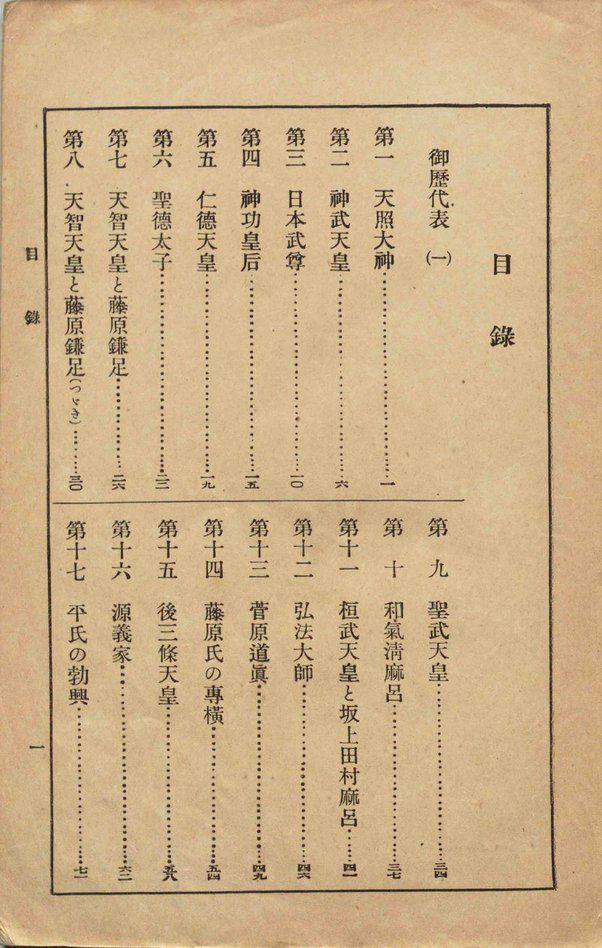 目錄
御歷代表(一)
第一 天照大神……一
第二 神武天皇……六
第三 日本武尊……一〇
第四 神功皇后……一五
第五 仁德天皇……一九
第六 聖德太子……二二
第七 天智天皇と藤原鎌足……二六
第八 天智天皇と藤原鎌足(つゞき)……三〇
第九 聖武天皇……三四
第十 和氣淸麻呂……三七
第十一 桓武天皇と坂上田村麻呂……四一
第十二 弘法大師……四六
第十三 菅原道眞……四九
第十四 藤原氏の專橫……五四
第十五 後三條天皇……五八
第十六 源義家……六二
第十七 平氏の勃興……七一
目錄
一